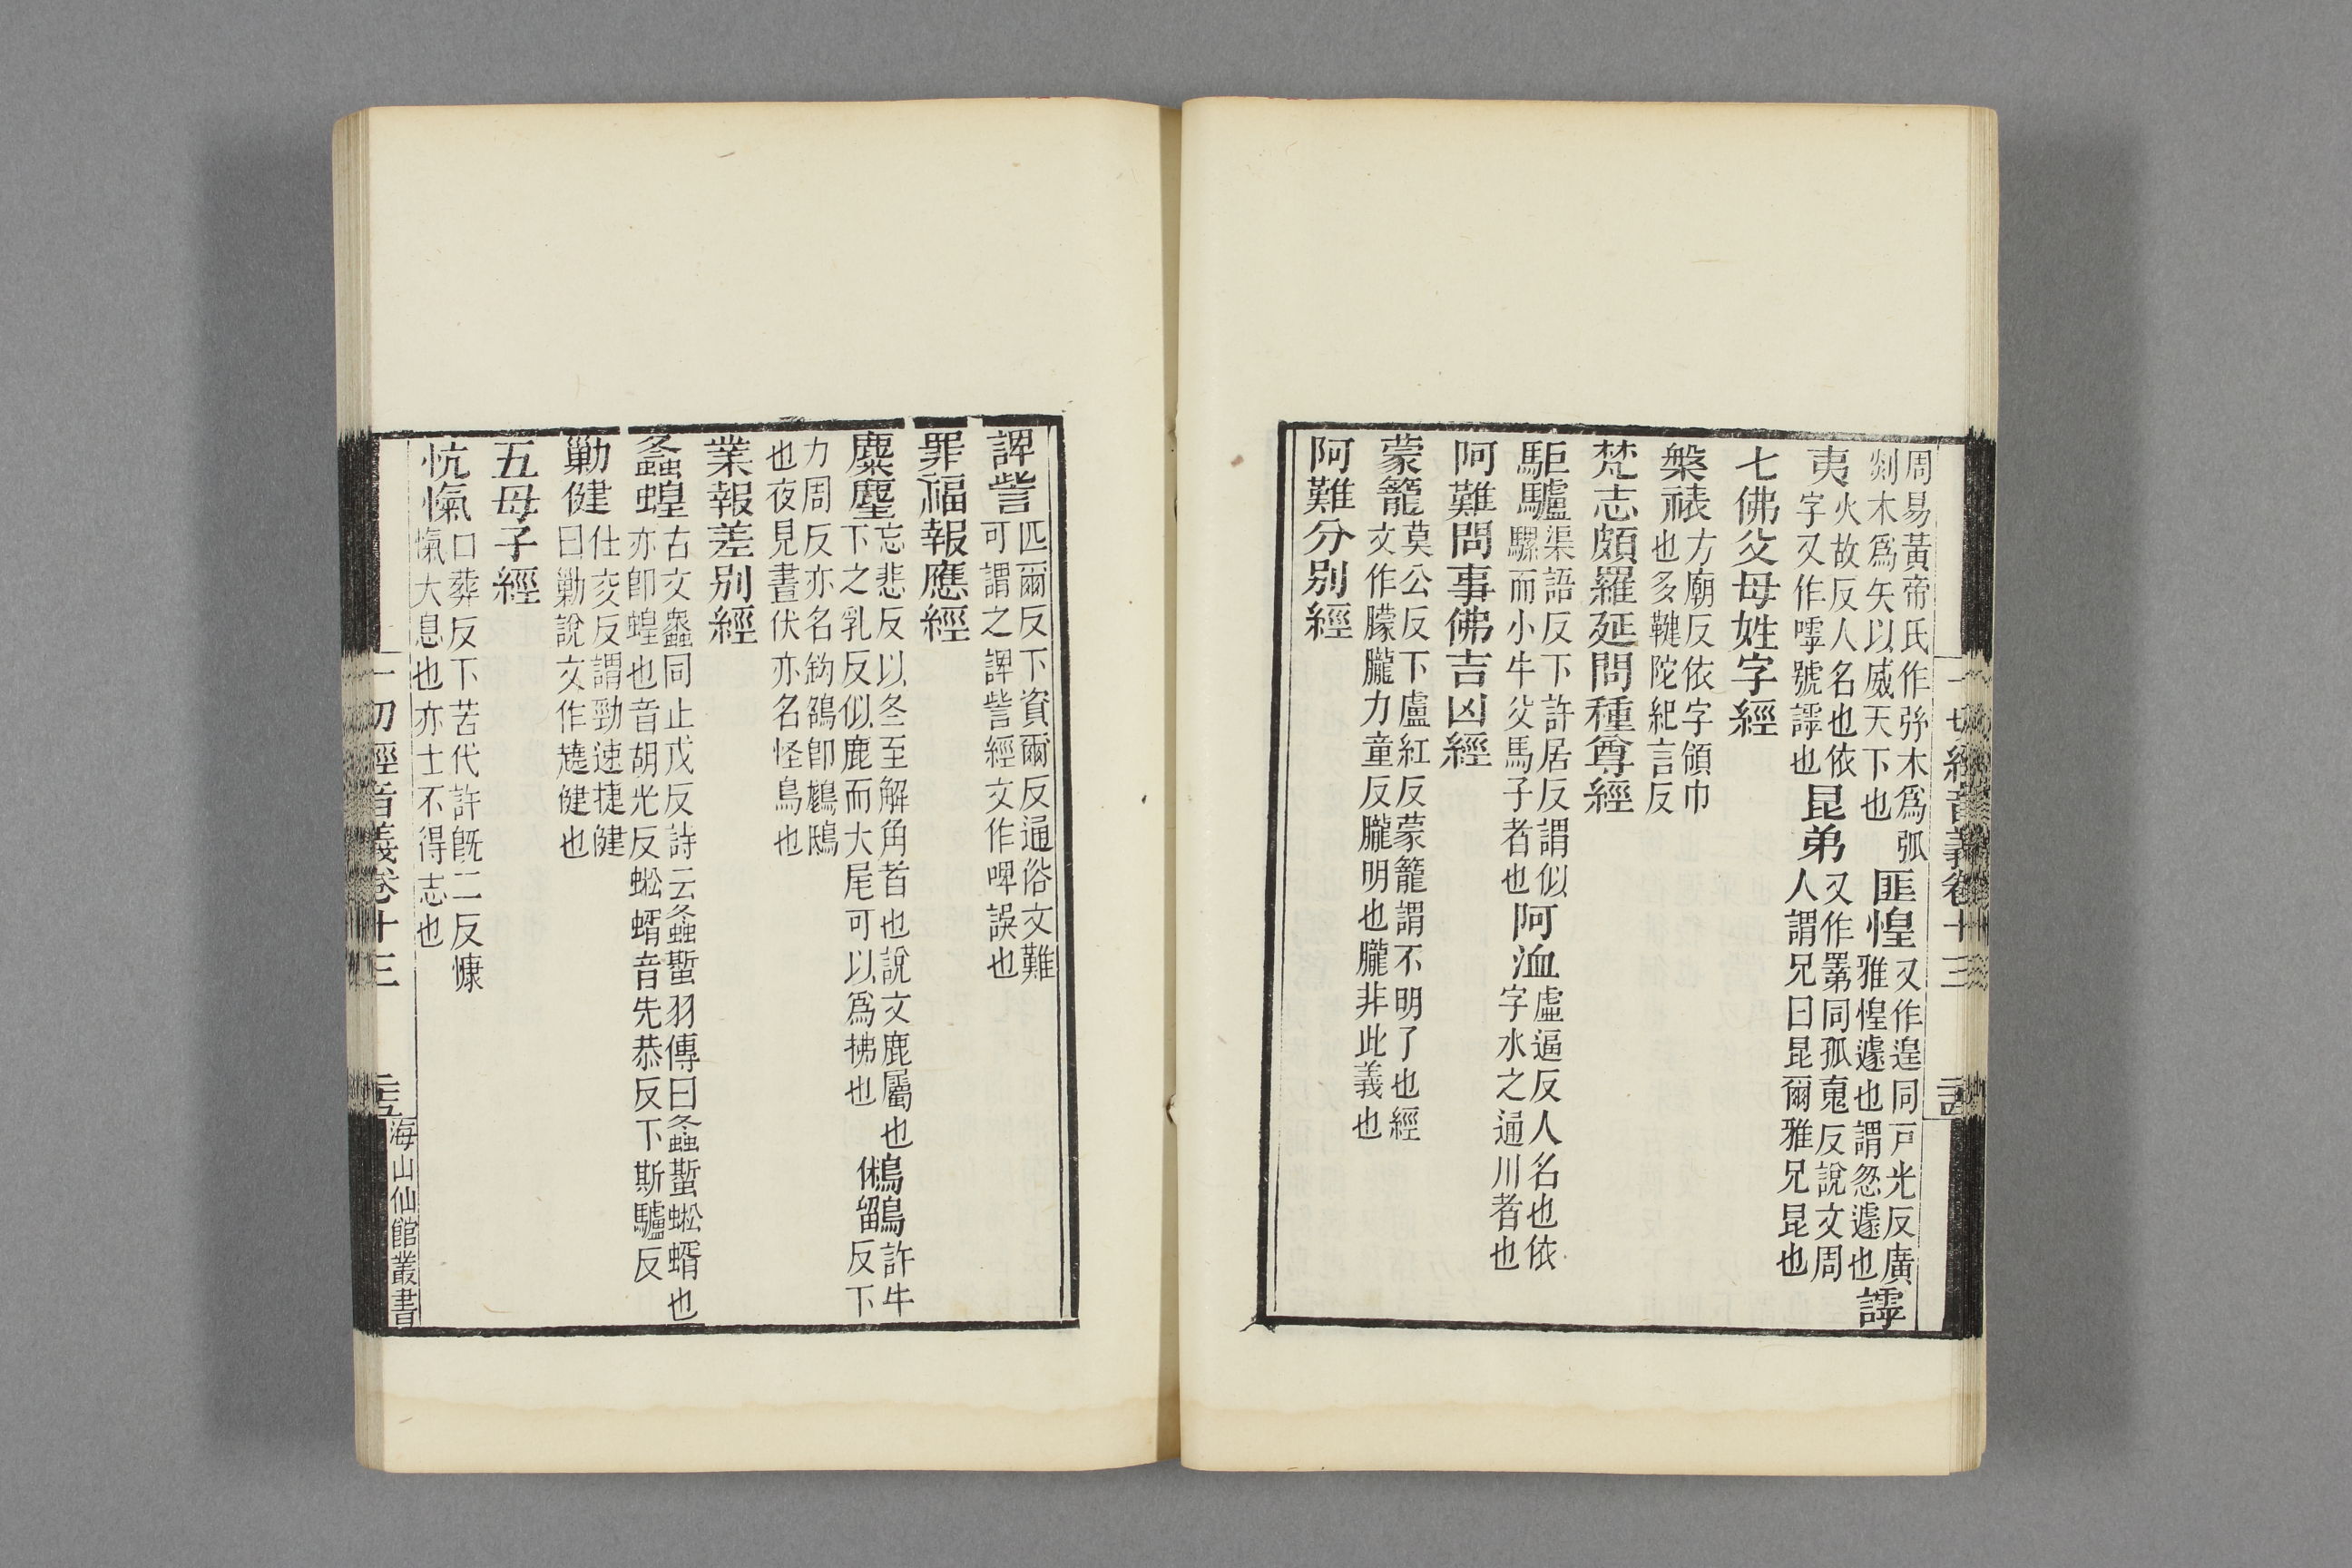 周易黃帝氏作弥木爲弧
剡木爲矢以威天下也
匪惶
又作遑同戸光反廣
雅惶遽也謂忽遽也
謣
夷
火故反人名也依
字又作嘑號謣也
昆弟
又作罤同孤䰟反說文周
人謂兄曰昆爾雅兄昆也
七佛父母姓字經
槃裱
方廟反依字領巾
也多鞬陀紀言反
梵志頗羅延問種尊經
駏驢
渠語反下許居反謂似
騾而小牛父馬子者也
阿洫
虛逼反人名也依
字水之通川者也
阿難問事佛吉凶經
蒙籠
莫公反下盧紅反蒙籠謂不明了也經
文作朦朧力童反朧明也朧非此義也
阿難分別經
一切經音義卷十三
諀訾
匹爾反下資爾反通俗文難
可謂之諀訾經文作啤誤也
罪福報應經
麋麈
忘悲反以冬至解角者也說文鹿屬也
下之乳反似鹿而大尾可以爲拂也
鵂鶹
許牛
反下
力周反亦名鈎鵅卽鵂鴟
也夜見晝伏亦名怪鳥也
業報差別經
螽蝗
古文𧑄同止戎反詩云螽蟴羽傳曰螽蟴蜙蝑也
亦卽蝗也音胡光反蜙蝑音先恭反下斯驢反
勦健
仕交反謂勁速捷健
曰勦說文作趬健也
五母子經
忼愾
口葬反下苦代許旣二反慷
愾大息也亦士不得志也
一切經音義卷十三
海山仙館叢書